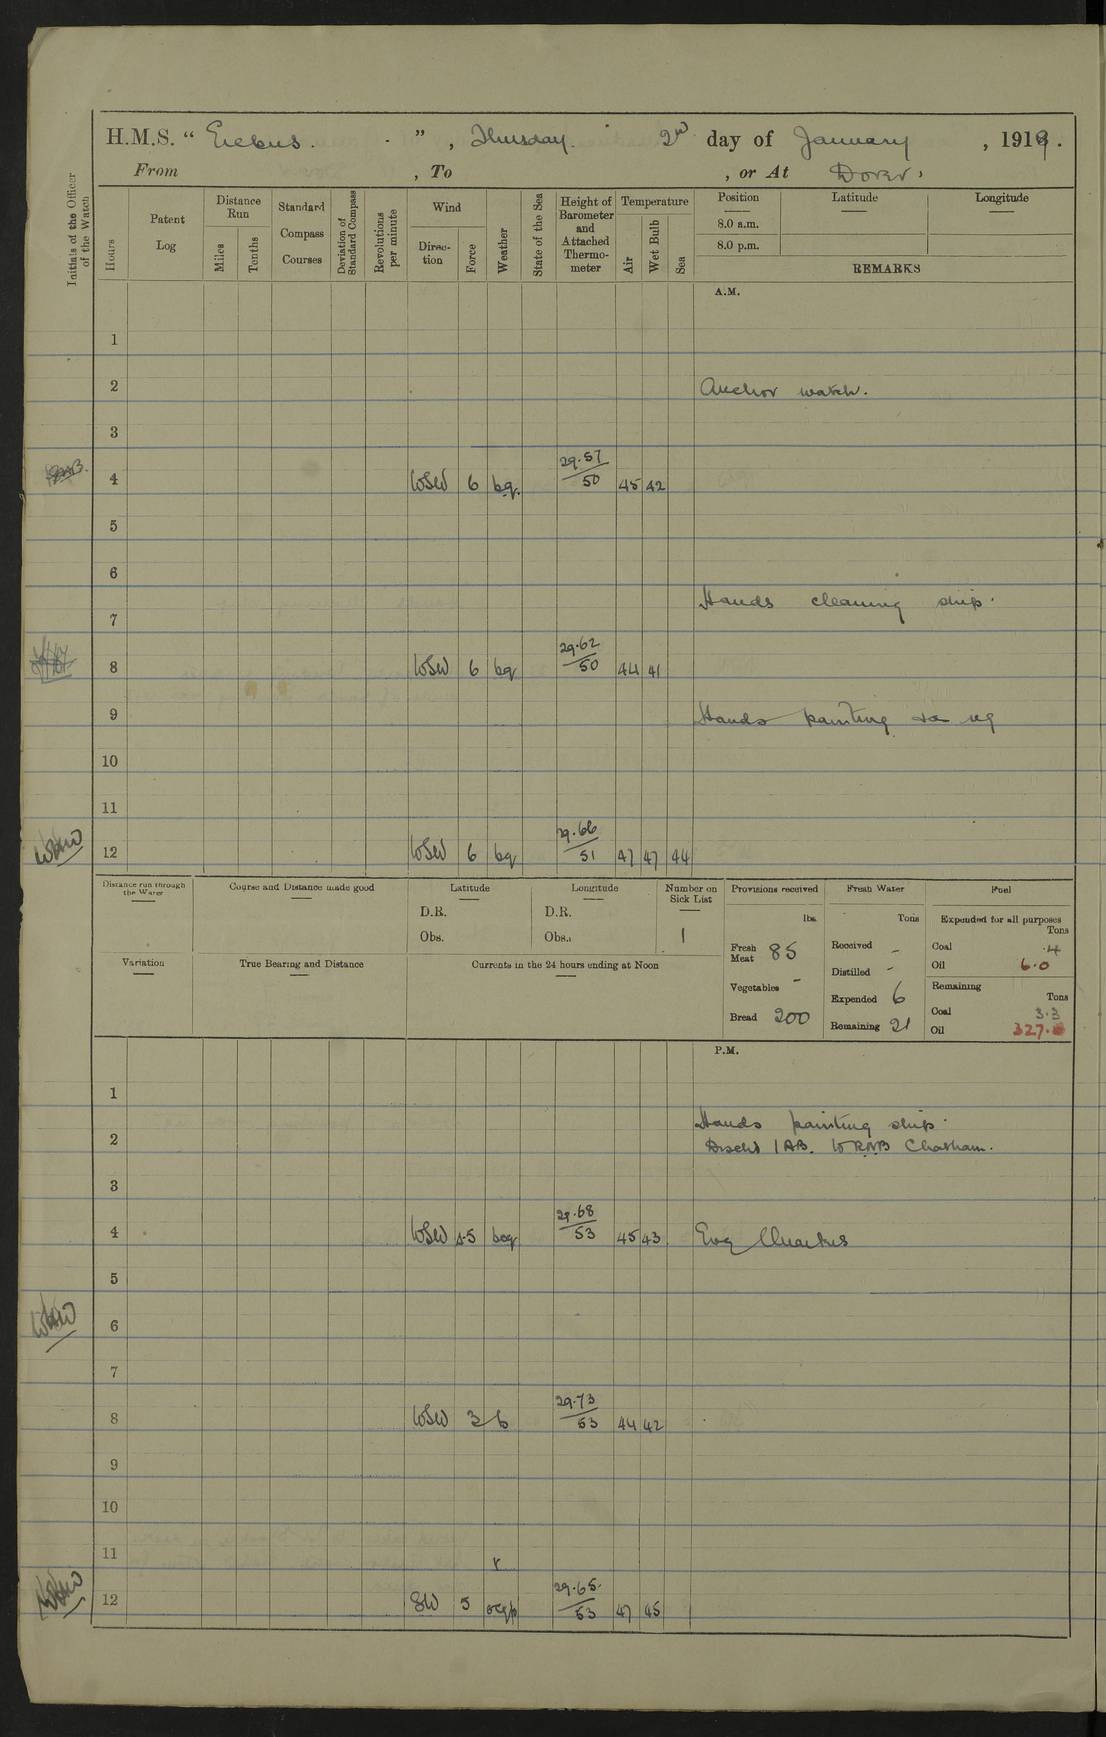 H.M.S. “ Erebus. ”, Thursday. 2nd day of January, 1919.
From , To , or At Dover.
Initials of the Officer of the Watch
Hours
Patent Log
Distance Run
Miles
Tenths
Standard Compass Courses
Deviation of Standard Compass
Revolutions per minute
Wind
Direc-tion
Force
Weather
State of the Sea
Height of Barometer and Attached Thermo-meter
Temperature
Air
Wet Bulb
Sea
Position Latitude Longitude
8.0 a.m.
8.0 p.m.
REMARKS
A.M.
1
2 Anchor watch.
3
4 WSW 6 bq. 29.57/50 45 42
5
6
Hands cleaning ship.
7
8 WSW 6 bq 29.62/50 44 41
9 Hands painting
10
11
12 WSW 6 bq 29.66/51 47 47 44
Distance run through the Water
Course and Distance made good
Latitude
D.R.
Obs.
Longitude
D.R.
Obs.
Number on Sick List
1
Variation
True Bearing and Distance
Currents in the 24 hours ending at Noon
Provisions received
lbs.
Fresh Meat 85
Vegetables -
Bread 200
Fresh Water
Tons
Received -
Distilled -
Expended 6
Remaining 21
Fuel
Expended for all purposes
Tons
Coal .4
Oil 6.0
Remaining
Tons
Coal 3.3
Oil 327.
P.M.
1
Hands painting ship.
2 Dischd 1 AB. to RNB Chatham.
3
4 WSW 4-5 bcq 29.68/53 45 43 Evg Quarters
5
6
7
8 WSW 3 b 29.73/53 44 42
9
10
11 r
12 SW 5 ocqp 29.65/53 47 45